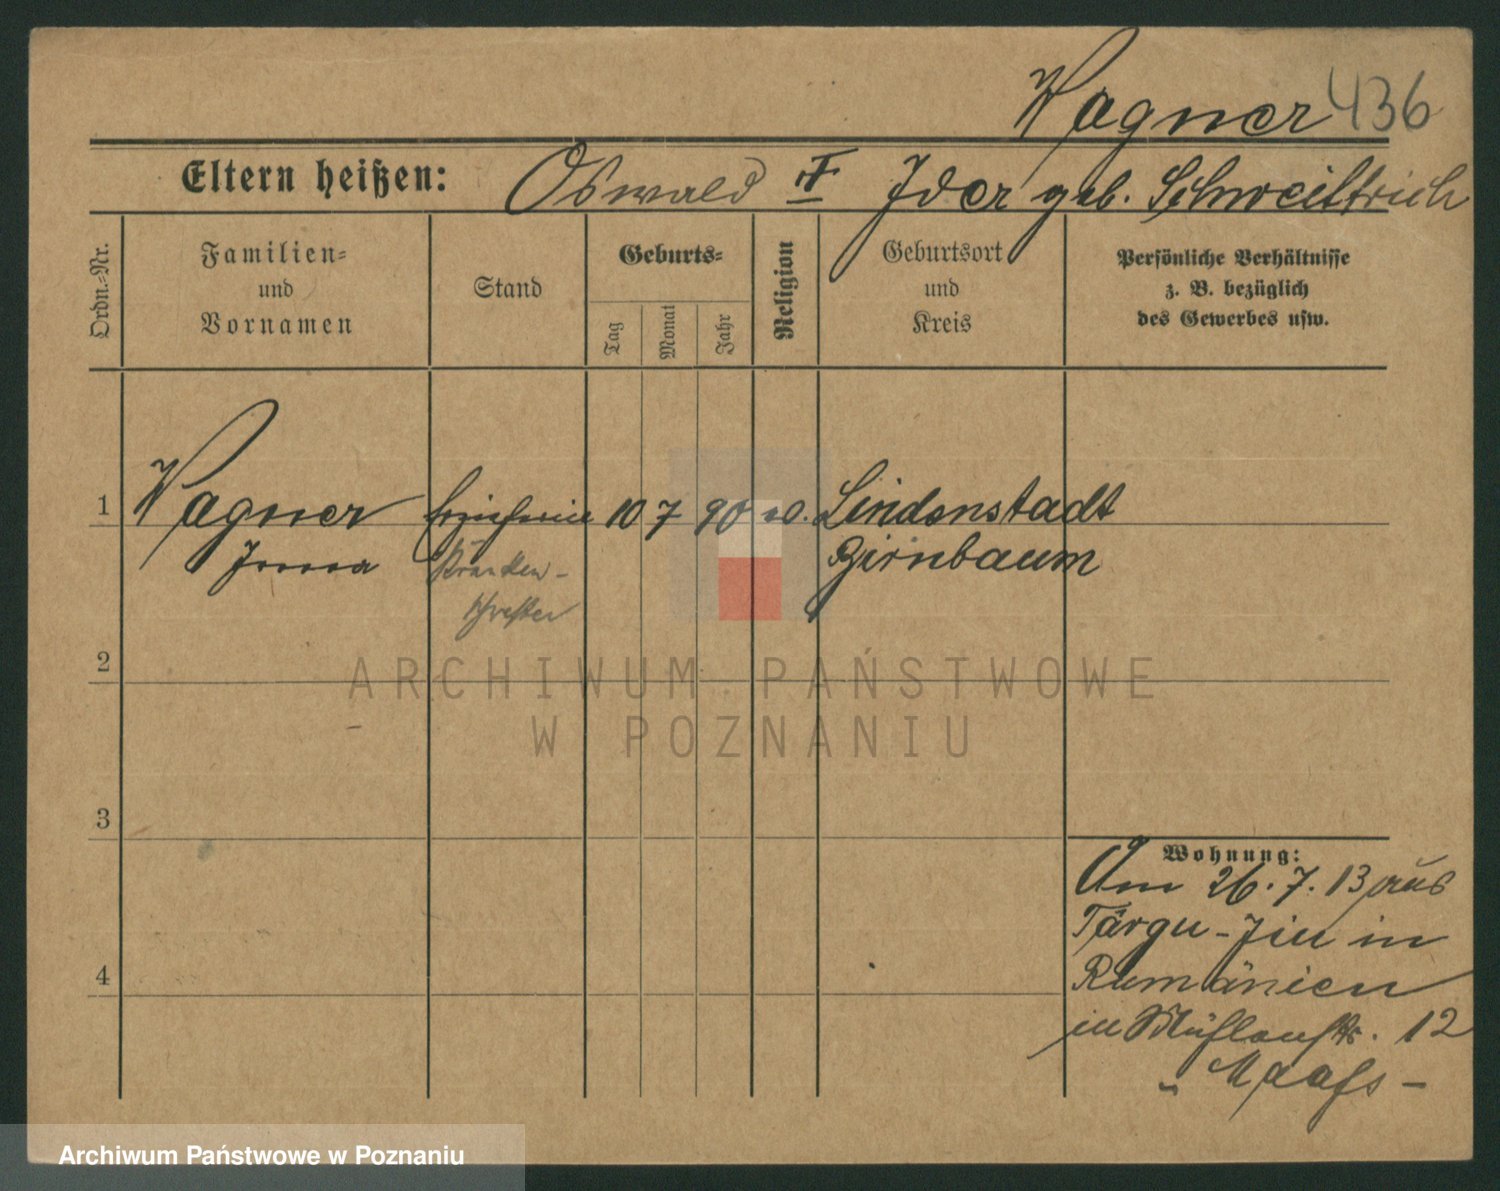 Wagner 436
Eltern heißen: Oswald u. Ida geb. Schweittrich
Ordn.-Nr.
Familien-
und
Vornamen
Stand
Geburts-
Tag
Monat
Jahr
Religion
Geburtsort
und
Kreis
Persönliche Verhältnisse
z. B. bezüglich
des Gewerbes usw.
1 Wagner Erzieherin 10 7 90 Lindenstadt
Birnbaum
Kranken-
schwester
2
3
4
Wohnung:
Am 26.7.13 aus
Târgu-Jiu in
Rumänien
in Mühlenstr. 12
Maaß -
ARCHIWUM PAŃSTWOWE
W POZNANIU
Archiwum Państwowe w Poznaniu